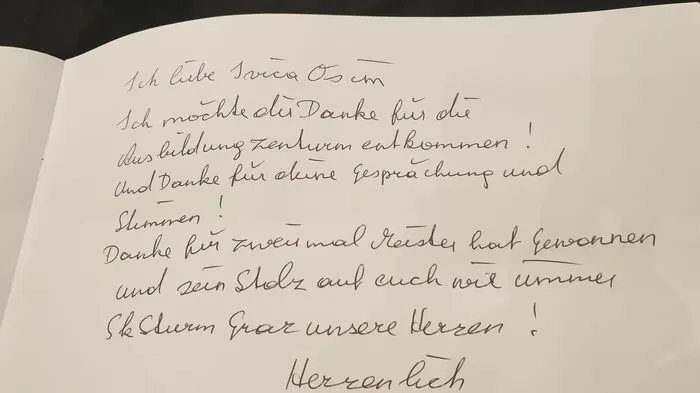 Ich liebe Ivica Osim
Ich möchte dir Danke für die
Ausbildung zenturm entkommen!
und Danke für deine Gesprächung und
Stimmen!
Danke für zweimal Meister hat Gewonnen
und sein Stolz auf euch wie immer
Sk Sturm Graz unsere Herzen!
Herzenlich